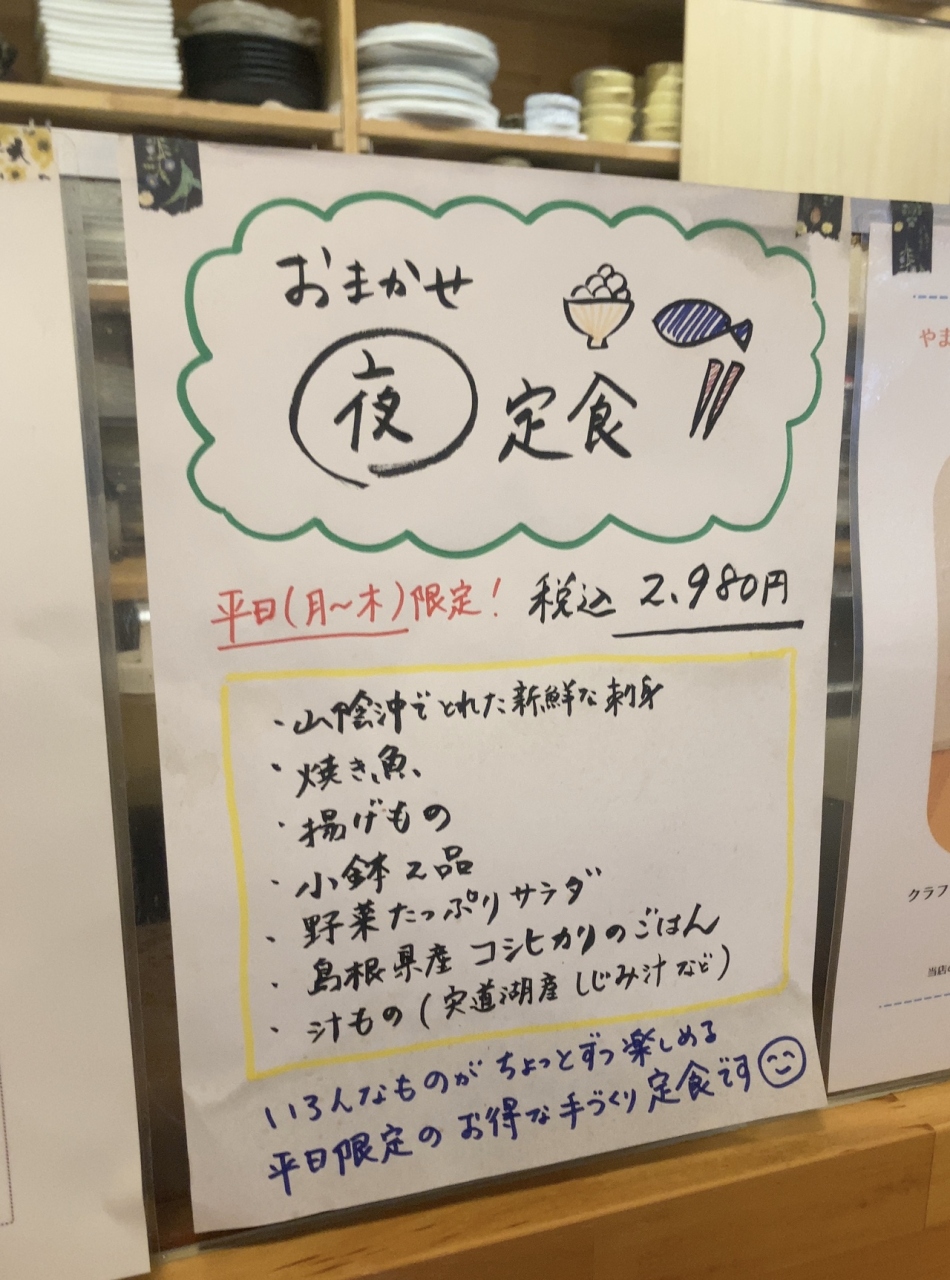 おまかせ
夜 定食
平日(月〜木)限定! 税込 2,980円
・山陰沖でとれた新鮮な刺身
・焼き魚
・揚げもの
・小鉢2品
・野菜たっぷりサラダ
・島根県産コシヒカリのごはん
・汁もの(宍道湖産しじみ汁など)
いろんなものがちょっとずつ楽しめる
平日限定のお得な手づくり定食です
やま
クラフ
当店の